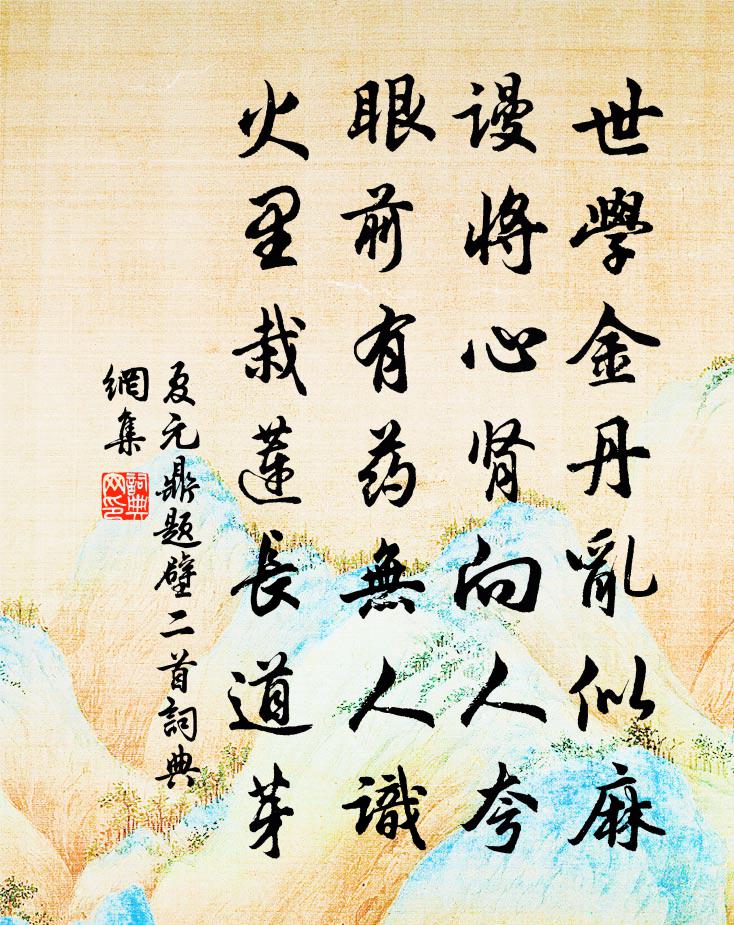 世學金丹亂似麻
謾將心肾向人夸
眼前有药無人識
火里栽蓮長道芽
夏元鼎题壁二首詞典
網集
詞典
网印